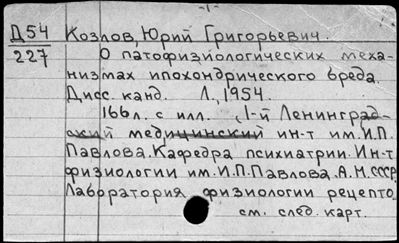 -1-
Д54 Козлов, Юрий Григорьевич.
227 О патофизиологических меха-
низмах ипохондрического бреда.
Дисс. канд. Л., 1954.
166 л. с илл. , 1-й Ленинград-
ский медицинский ин-т им. И.П.
Павлова. Кафедра психиатрии. Ин-т
физиологии им. И.П. Павлова. А.Н.СССР.
Лаборатория физиологии рецепто.
см. след. карт.